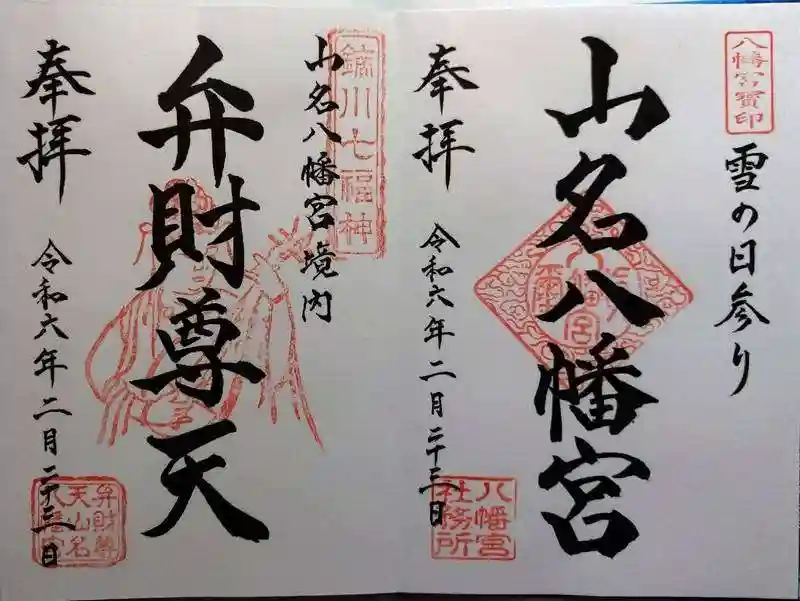 八幡宮寶印
雪の日参り
山名八幡宮
奉拝
令和六年二月二十三日
八幡宮
社務所
鏑川七福神
山名八幡宮境内
弁財尊天
奉拝
令和六年二月二十三日
弁財尊
天山名
八幡宮